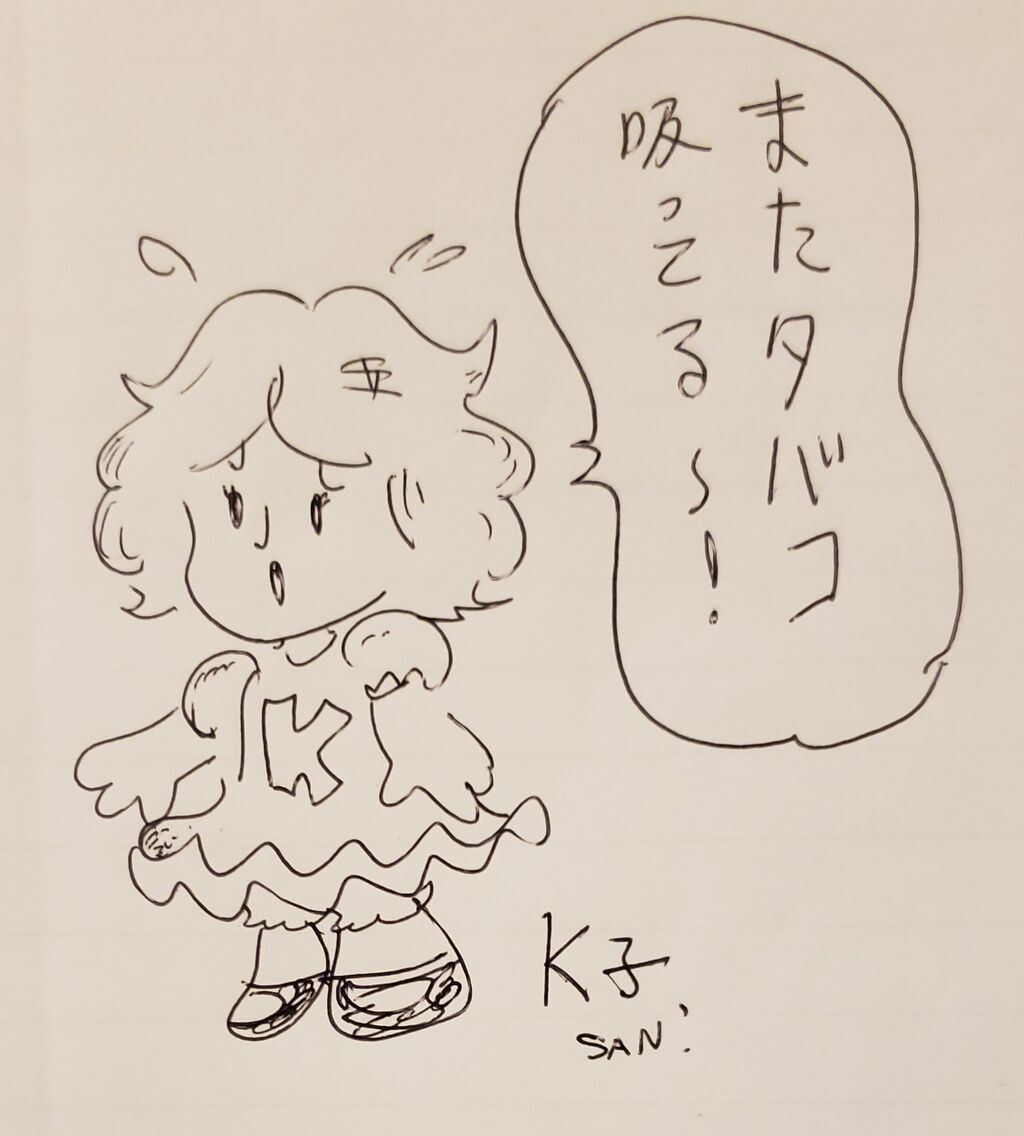 またタバコ
吸ってる〜!
K
K子
SAN!